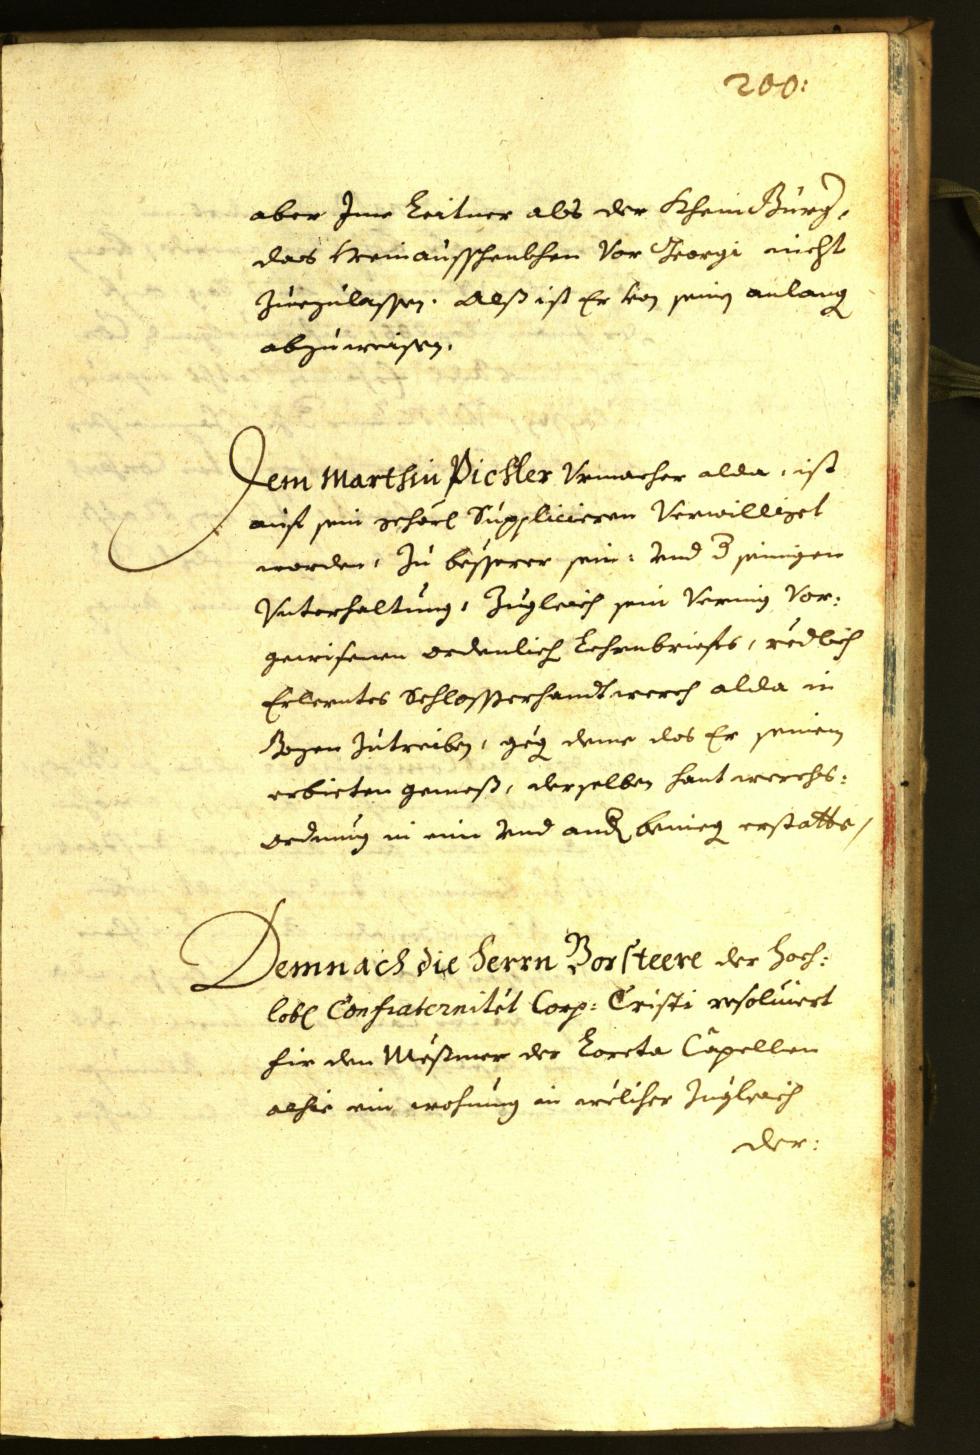 200:
aber Ime Leitner als der Khein Burg,
das Weinausschenkhen vor Georgi nicht
Zuezulassen. Alß ist Er von seinem anlang
abzuweisen.
Dem Marthin Pichler Vrmacher alda, ist
auf sein gehörl Supplicieren Verwilliget
worden, Zu bësserer sein: Vnd d seinigen
Vnterhaltung, Zugleich sein Vermig Vor:
gewisenen ordenlich Lehrnbriefs, rëdlich
Erlerntes Schlosserhandtwerch alda in
Bozen Zutreiben, gegen deme das Er seinem
erbieten gemeß, derselben hantwerchs:
ordnung in ein Vnd ander benieg erstatte,
Demnach die Herrn Vorsteere der Hoch:
lobl Confraternitët Corp: Cristi resoluiert
für den Mëßmer der Loreta Capellen
alhie ein wohnung in wëlicher Zugleich
der: